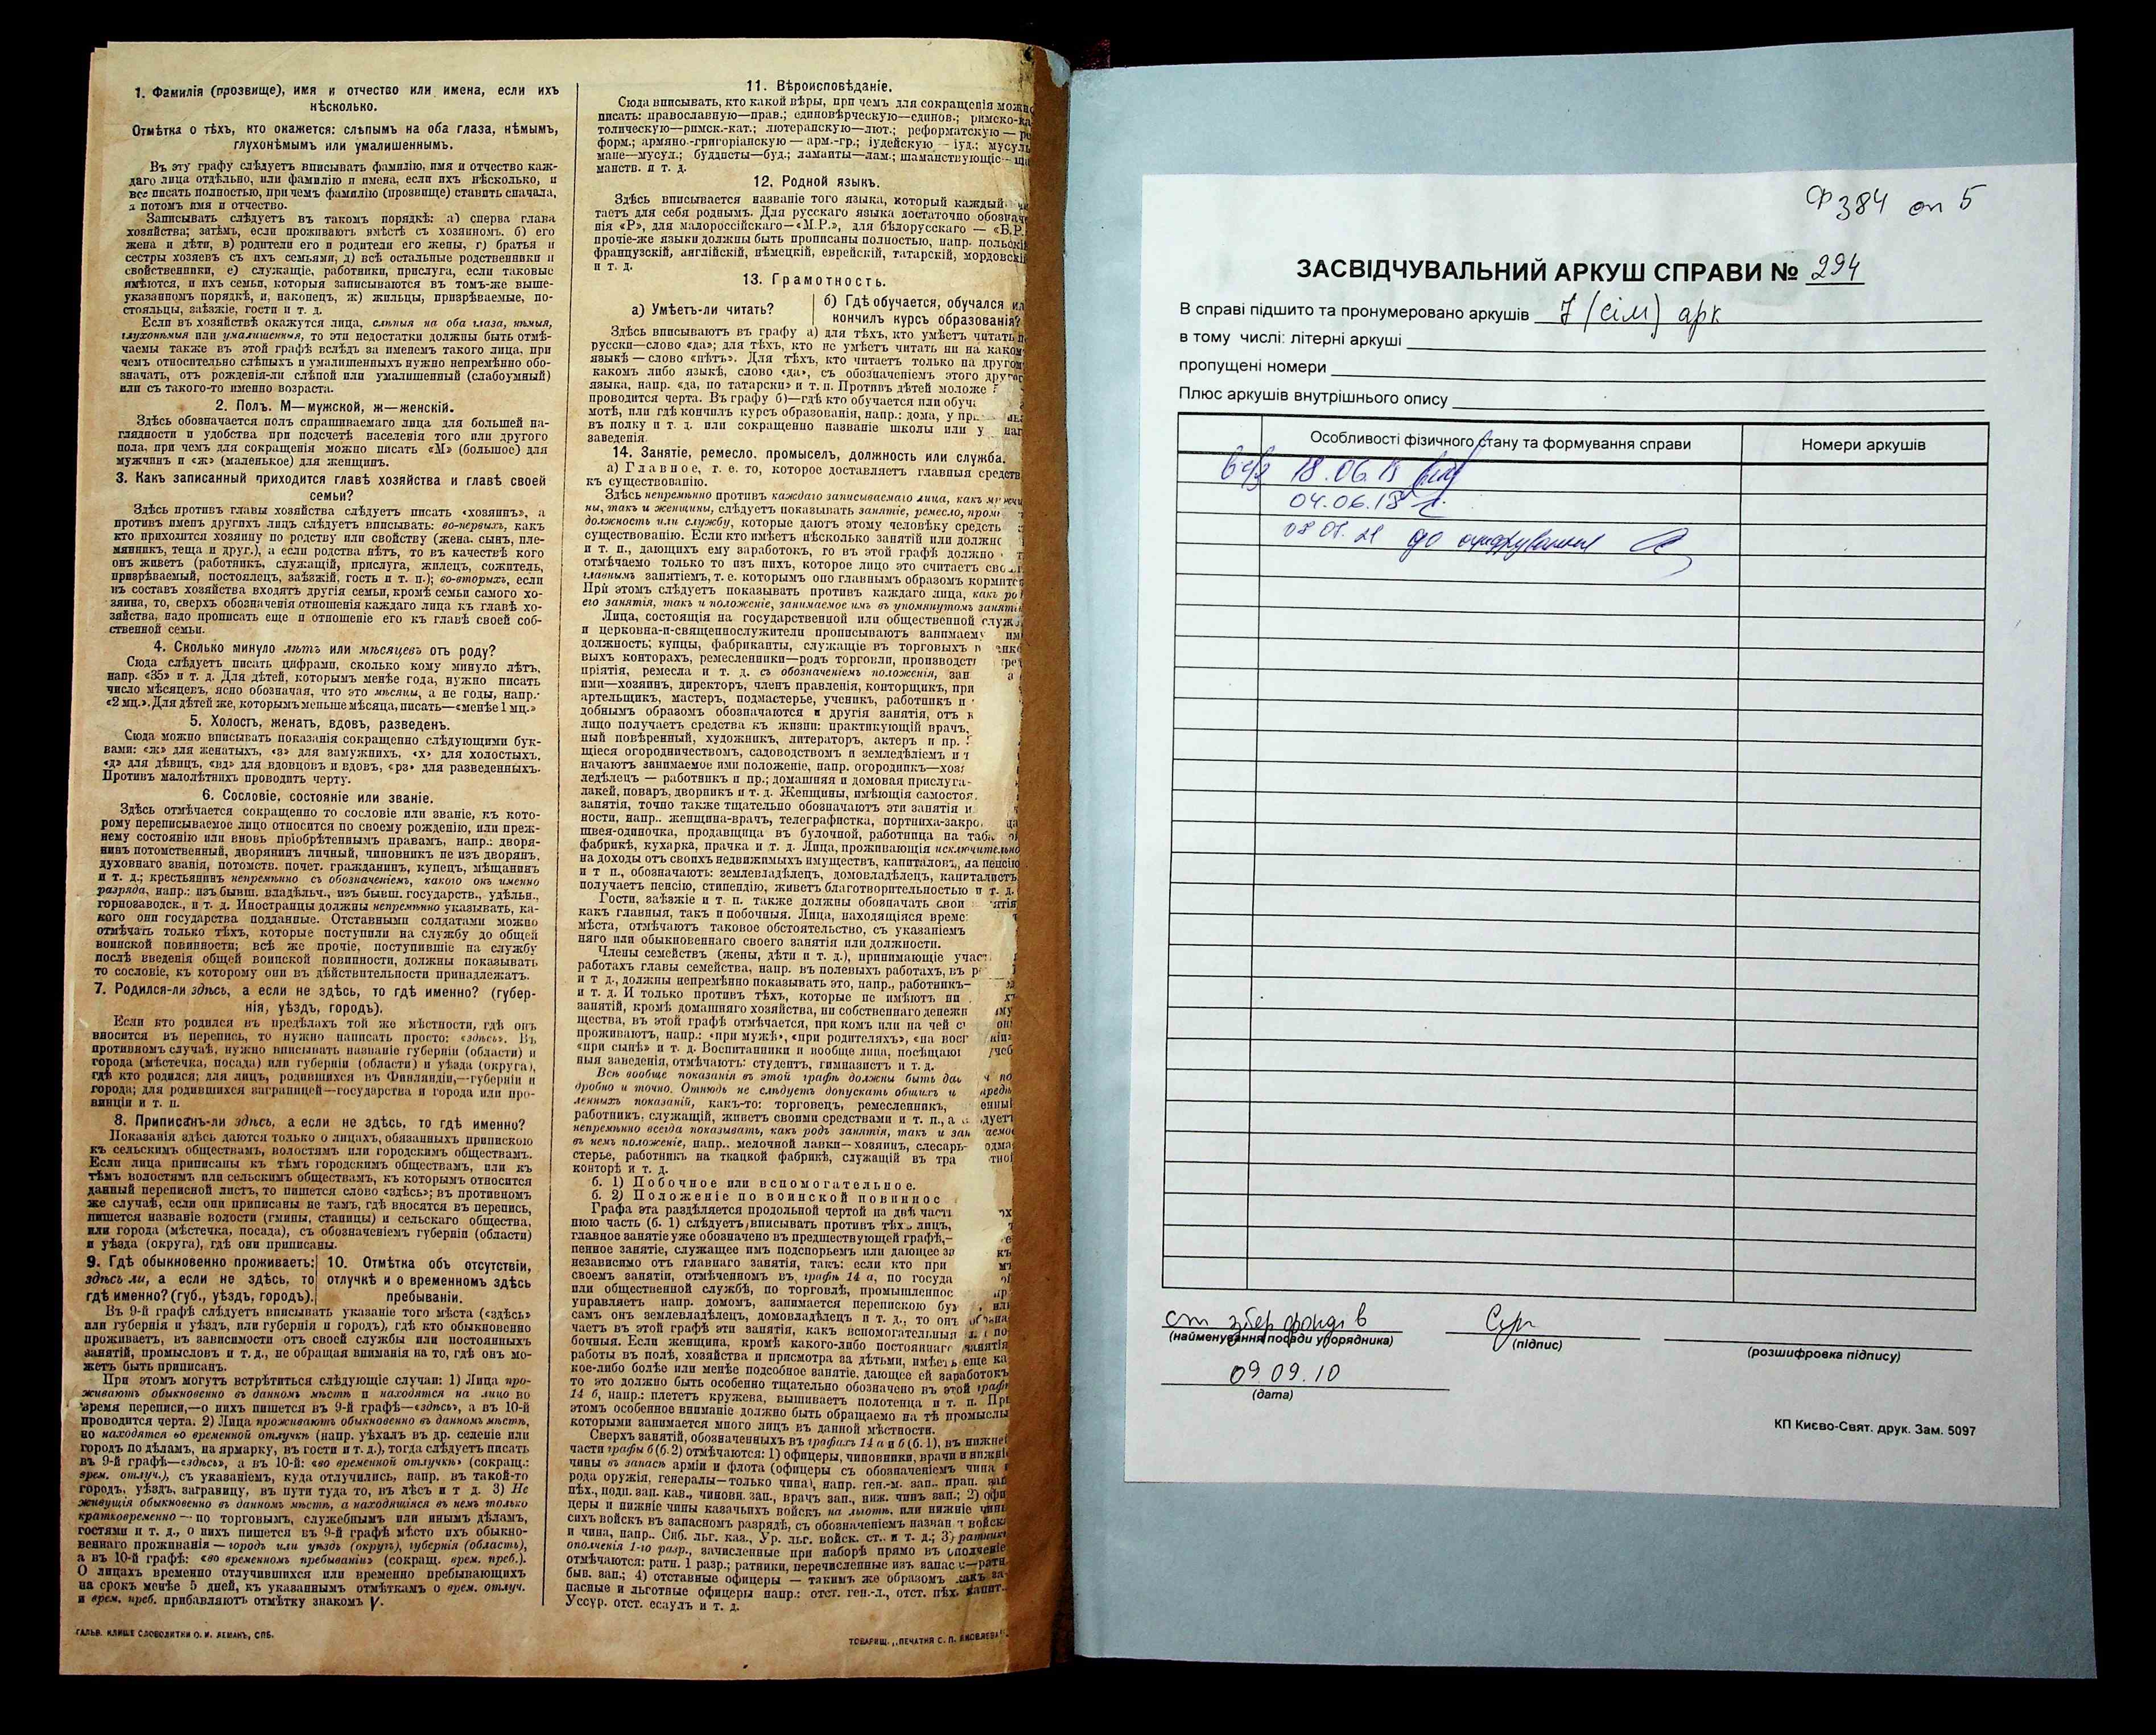 1. Фамилія (прозвище), имя и отчество или имена, если ихъ
нѣсколько.
Отмѣтка о тѣхъ, кто окажется: слѣпымъ на оба глаза, нѣмымъ,
глухонѣмымъ или умалишеннымъ.
Въ эту графу слѣдуетъ вписывать фамилію, имя и отчество каж-
даго лица отдѣльно, или фамилію и имена, если ихъ нѣсколько, и
все писать полностью, при чемъ фамилію (прозвище) ставить сначала,
а потомъ имя и отчество.
Записывать слѣдуетъ въ такомъ порядкѣ: а) сперва глава
хозяйства; затѣмъ, если проживаютъ вмѣстѣ съ хозяиномъ. б) его
жена и дѣти, в) родители его и родители его жены, г) братья и
сестры хозяевъ съ ихъ семьями, д) всѣ остальные родственники и
свойственники, е) служащіе, работники, прислуга, если таковые
имѣются, и ихъ семьи, которыя записываются въ томъ-же выше-
указанномъ порядкѣ, и, наконецъ, ж) жильцы, призрѣваемые, по-
стояльцы, заѣзжіе, гости и т. п.
Если въ хозяйствѣ окажутся лица, слѣпыя на оба глаза, нѣмыя,
глухонѣмыя или умалишенныя, то эти недостатки должны быть отмѣ-
чаемы также въ этой графѣ вслѣдъ за именемъ такого лица, при
чемъ относительно слѣпыхъ и умалишенныхъ нужно непремѣнно обо-
значать, отъ рожденія-ли слѣпой или умалишенный (слабоумный)
или съ такого-то именно возраста.
2. Полъ. М—мужской, ж—женскій.
Здѣсь обозначается полъ спрашиваемаго лица для большей на-
глядности и удобства при подсчетѣ населенія того или другого
пола, при чемъ для сокращенія можно писать «М» (большое) для
мужчинъ и «ж» (маленькое) для женщинъ.
3. Какъ записанный приходится главѣ хозяйства и главѣ своей
семьи?
Здѣсь противъ главы хозяйства слѣдуетъ писать «хозяинъ», а
противъ именъ другихъ лицъ слѣдуетъ вписывать: во-первыхъ, какъ
кто приходится хозяину по родству или свойству (жена, сынъ, пле-
мянникъ, теща и друг.), а если родства нѣтъ, то въ качествѣ кого
онъ живетъ (работникъ, служащій, прислуга, жилецъ, сожитель,
призрѣваемый, постоялецъ, заѣзжій, гость и т. п.); во-вторыхъ, если
въ составъ хозяйства входятъ другія семьи, кромѣ семьи самого хо-
зяина, то, сверхъ обозначенія отношенія каждаго лица къ главѣ хо-
зяйства, надо прописать еще и отношеніе его къ главѣ своей соб-
ственной семьи.
4. Сколько минуло лѣтъ или мѣсяцевъ отъ роду?
Сюда слѣдуетъ писать цифрами, сколько кому минуло лѣтъ,
напр. «35» и т. д. Для дѣтей, которымъ менѣе года, нужно писать
число мѣсяцевъ, ясно обозначая, что это мѣсяцы, а не годы, напр.
«2 мц.». Для дѣтей же, которымъ меньше мѣсяца, писать—«менѣе 1 мц.»
5. Холостъ, женатъ, вдовъ, разведенъ.
Сюда можно вписывать показанія сокращенно слѣдующими бук-
вами: «ж» для женатыхъ, «з» для замужнихъ, «х» для холостыхъ,
«д» для дѣвицъ, «вд» для вдовцовъ и вдовъ, «рз» для разведенныхъ.
Противъ малолѣтнихъ проводить черту.
6. Сословіе, состояніе или званіе.
Здѣсь отмѣчается сокращенно то сословіе или званіе, къ кото-
рому переписываемое лицо относится по своему рожденію, или преж-
нему состоянію или вновь пріобрѣтеннымъ правамъ, напр.: дворя-
нинъ потомственный, дворянинъ личный, чиновникъ не изъ дворянъ,
духовнаго званія, потомств. почет. гражданинъ, купецъ, мѣщанинъ
и т. д.; крестьянинъ непремѣнно съ обозначеніемъ, какого онъ именно
разряда, напр.: изъ бывш. владѣльч., изъ бывш. государств., удѣльн.,
горнозаводск., и т. д. Иностранцы должны непремѣнно указывать, ка-
кого они государства подданные. Отставными солдатами можно
отмѣчать только тѣхъ, которые поступили на службу до общей
воинской повинности; всѣ же прочіе, поступившіе на службу
послѣ введенія общей воинской повинности, должны показывать
то сословіе, къ которому они въ дѣйствительности принадлежатъ.
7. Родился-ли здѣсь, а если не здѣсь, то гдѣ именно? (губер-
нія, уѣздъ, городъ).
Если кто родился въ предѣлахъ той же мѣстности, гдѣ онъ
вносится въ перепись, то нужно написать просто: «здѣсь». Въ
противномъ случаѣ, нужно вписывать названіе губерніи (области) и
города (мѣстечка, посада) или губерніи (области) и уѣзда (округа),
гдѣ кто родился; для лицъ, родившихся въ Финляндіи,—губерніи и
города; для родившихся заграницей—государства и города или про-
винціи и т. п.
8. Приписанъ-ли здѣсь, а если не здѣсь, то гдѣ именно?
Показанія здѣсь даются только о лицахъ, обязанныхъ припискою
къ сельскимъ обществамъ, волостямъ или городскимъ обществамъ.
Если лица приписаны къ тѣмъ городскимъ обществамъ, или къ
тѣмъ волостямъ или сельскимъ обществамъ, къ которымъ относится
данный переписной листъ, то пишется слово «здѣсь»; въ противномъ
же случаѣ, если они приписаны не тамъ, гдѣ вносятся въ перепись,
пишется названіе волости (гмины, станицы) и сельскаго общества,
или города (мѣстечка, посада), съ обозначеніемъ губерніи (области)
и уѣзда (округа), гдѣ они приписаны.
9. Гдѣ обыкновенно проживаетъ:
здѣсь ли, а если не здѣсь, то
гдѣ именно? (губ., уѣздъ, городъ).
10. Отмѣтка объ отсутствіи,
отлучкѣ и о временномъ здѣсь
пребываніи.
Въ 9-й графѣ слѣдуетъ вписывать указаніе того мѣста («здѣсь»
или губернія и уѣздъ, или губернія и городъ), гдѣ кто обыкновенно
проживаетъ, въ зависимости отъ своей службы или постоянныхъ
занятій, промысловъ и т. д., не обращая вниманія на то, гдѣ онъ мо-
жетъ быть приписанъ.
При этомъ могутъ встрѣтиться слѣдующіе случаи: 1) Лица про-
живаютъ обыкновенно въ данномъ мѣстѣ и находятся на лицо во
время переписи,—о нихъ пишется въ 9-й графѣ—«здѣсь», а въ 10-й
проводится черта. 2) Лица проживаютъ обыкновенно въ данномъ мѣстѣ,
но находятся во временной отлучкѣ (напр. уѣхалъ въ др. селеніе или
городъ по дѣламъ, на ярмарку, въ гости и т. д.), тогда слѣдуетъ писать
въ 9-й графѣ—«здѣсь», а въ 10-й: «во временной отлучкѣ» (сокращ.:
врем. отлуч.), съ указаніемъ, куда отлучились, напр. въ такой-то
городъ, уѣздъ, заграницу, въ пути туда то, въ лѣсъ и т д. 3) Не
живущія обыкновенно въ данномъ мѣстѣ, а находящіяся въ немъ только
кратковременно — по торговымъ, служебнымъ или инымъ дѣламъ,
гостями и т. д., о нихъ пишется въ 9-й графѣ мѣсто ихъ обыкно-
веннаго проживанія — городъ или уѣздъ (округъ), губернія (область),
а въ 10-й графѣ: «во временномъ пребываніи» (сокращ. врем. преб.).
О лицахъ временно отлучившихся или временно пребывающихъ
на срокъ менѣе 5 дней, къ указаннымъ отмѣткамъ о врем. отлуч.
и врем. преб. прибавляютъ отмѣтку знакомъ V.
ГАЛЬВ. КЛИШЕ СЛОВОЛИТНИ О. И. ЛЕМАНЪ, СПБ.
11. Вѣроисповѣданіе.
Сюда вписывать, кто какой вѣры, при чемъ для сокращенія можно
писать: православную—прав.; единовѣрческую—единов.; римско-ка-
толическую—римск.-кат.; лютеранскую—лют.; реформатскую —
форм.; армяно-григоріанскую — арм.-гр.; іудейскую — іуд.; мусуль
мане—мусул.; буддисты—буд.; ламаиты—лам.; шаманствующіе—
манств. и т. д.
12. Родной языкъ.
Здѣсь вписывается названіе того языка, который каждый
таетъ для себя роднымъ. Для русскаго языка достаточно обознач
нія «Р», для малороссійскаго—«М.Р.», для бѣлорусскаго — «Б.Р.
прочіе-же языки должны быть прописаны полностью, напр. польскій
французскій, англійскій, нѣмецкій, еврейскій, татарскій, мордовскій
и т. д.
13. Грамотность.
а) Умѣетъ-ли читать?
б) Гдѣ обучается, обучался ил
кончилъ курсъ образованія?
Здѣсь вписываютъ въ графу а) для тѣхъ, кто умѣетъ читать п
русски—слово «да»; для тѣхъ, кто не умѣетъ читать ни на каком
языкѣ — слово «нѣтъ». Для тѣхъ, кто читаетъ только на другом
какомъ либо языкѣ, слово «да», съ обозначеніемъ этого друго
языка, напр. «да, по татарски» и т. п. Противъ дѣтей моложе
проводится черта. Въ графу б)—гдѣ кто обучается или обуча
мотѣ, или гдѣ кончилъ курсъ образованія, напр.: дома, у
въ полку и т. д. или сокращенно названіе школы или у
заведенія.
14. Занятіе, ремесло, промыселъ, должность или служба.
а) Главное, т. е. то, которое доставляетъ главныя средств
къ существованію.
Здѣсь непремѣнно противъ каждаго записываемаго лица, какъ мужчи
ны, такъ и женщины, слѣдуетъ показывать занятіе, ремесло, пром
должность или службу, которые даютъ этому человѣку средств
существованію. Если кто имѣетъ нѣсколько занятій или должно
и т. п., дающихъ ему заработокъ, то въ этой графѣ должно
отмѣчаемо только то изъ нихъ, которое лицо это считаетъ сво
главнымъ занятіемъ, т. е. которымъ оно главнымъ образомъ кормится
При этомъ слѣдуетъ показывать противъ каждаго лица, какъ ро
его занятія, такъ и положеніе, занимаемое имъ въ упомянутомъ заняті
Лица, состоящія на государственной или общественной служ
и церковно-и-священнослужители прописываютъ занимаему им
должность; купцы, фабриканты, служащіе въ торговыхъ
выхъ конторахъ, ремесленники—родъ торговли, производст
пріятія, ремесла и т. д. съ обозначеніемъ положенія, зан
ими—хозяинъ, директоръ, членъ правленія, конторщикъ, при
артельщикъ, мастеръ, подмастерье, ученикъ, работникъ и
добнымъ образомъ обозначаются и другія занятія, отъ к
лицо получаетъ средства къ жизни: практикующій врачъ,
ный повѣренный, художникъ, литераторъ, актеръ и пр.
щіеся огородничествомъ, садоводствомъ и земледѣліемъ и т
начаютъ занимаемое ими положеніе, напр. огородникъ—хозя
ледѣлецъ — работникъ и пр.; домашняя и домовая прислуга-
лакей, поваръ, дворникъ и т. д. Женщины, имѣющія самостоя
занятія, точно также тщательно обозначаютъ эти занятія и
ности, напр.. женщина-врачъ, телеграфистка, портниха-закро
швея-одиночка, продавщица въ булочной, работница на таба
фабрикѣ, кухарка, прачка и т. д. Лица, проживающія исключительно
на доходы отъ своихъ недвижимыхъ имуществъ, капиталовъ, на пенсію
и т п., обозначаютъ: землевладѣлецъ, домовладѣлецъ, капиталистъ
получаетъ пенсію, стипендію, живетъ благотворительностью и т. д.
Гости, заѣзжіе и т. п. также должны обозначать свои
какъ главныя, такъ и побочныя. Лица, находящіяся време
мѣста, отмѣчаютъ таковое обстоятельство, съ указаніемъ
няго или обыкновеннаго своего занятія или должности.
Члены семействъ (жены, дѣти и т. д.), принимающіе участ
работахъ главы семейства, напр. въ полевыхъ работахъ, въ р
и т д., должны непремѣнно показывать это, напр., работникъ—
и т. д. И только противъ тѣхъ, которые не имѣютъ ни
занятій, кромѣ домашняго хозяйства, ни собственнаго денежн
щества, въ этой графѣ отмѣчается, при комъ или на чей с
проживаютъ, напр.: «при мужѣ», «при родителяхъ», «на восп
«при сынѣ» и т. д. Воспитанники и вообще лица, посѣщаю
ныя заведенія, отмѣчаютъ: студентъ, гимназистъ и т. д.
Всѣ вообще показанія въ этой графѣ должны быть да
дробно и точно. Отнюдь не слѣдуетъ допускать общихъ и
ленныхъ показаній, какъ-то: торговецъ, ремесленникъ,
работникъ, служащій, живетъ своими средствами и т. п., а
непремѣнно всегда показывать, какъ родъ занятія, такъ и зан
въ немъ положеніе, напр.. мелочной лавки—хозяинъ, слесарь-
стерье, работникъ на ткацкой фабрикѣ, служащій въ тра
конторѣ и т. д.
б. 1) Побочное или вспомогательное.
б. 2) Положеніе по воинской повиннос
Графа эта раздѣляется продольной чертой на двѣ част
нюю часть (б. 1) слѣдуетъ вписывать противъ тѣхъ лицъ,
главное занятіе уже обозначено въ предшествующей графѣ,—
пенное занятіе, служащее имъ подспорьемъ или дающее за
независимо отъ главнаго занятія, такъ: если кто при
своемъ занятіи, отмѣченномъ въ графѣ 14 а, по госуда
или общественной службѣ, по торговлѣ, промышленнос
управляетъ напр. домомъ, занимается перепискою бу
самъ онъ землевладѣлецъ, домовладѣлецъ и т. д., то онъ
чаетъ въ этой графѣ эти занятія, какъ вспомогательныя
бочныя. Если женщина, кромѣ какого-либо постояннаго занятія
работы въ полѣ, хозяйства и присмотра за дѣтьми, имѣетъ еще ка
кое-либо болѣе или менѣе подсобное занятіе, дающее ей заработокъ
то это должно быть особенно тщательно обозначено въ этой графѣ
14 б, напр.: плететъ кружева, вышиваетъ полотенца и т. п. При
этомъ особенное вниманіе должно быть обращаемо на тѣ промыслы
которыми занимается много лицъ въ данной мѣстности.
Сверхъ занятій, обозначенныхъ въ графахъ 14 а и б (б. 1), въ нижней
части графы б (б. 2) отмѣчаются: 1) офицеры, чиновники, врачи и нижніе
чины въ запасѣ арміи и флота (офицеры съ обозначеніемъ чина и
рода оружія, генералы—только чина), напр. ген.-м. зап., прап. зап
пѣх., подп. зап. кав., чиновн. зап., врачъ зап., ниж. чинъ зап.; 2) офи
церы и нижніе чины казачьихъ войскъ на льготѣ, или нижніе чины
сихъ войскъ въ запасномъ разрядѣ, съ обозначеніемъ назван войска
и чина, напр.. Спб. льг. каз., Ур. льг. войск. ст.. и т. д.; 3) ратники
ополченія 1-го разр., зачисленные при наборѣ прямо въ ополченіе
отмѣчаются: ратн. 1 разр.; ратники, перечисленные изъ запас —ратн.
быв. зап.; 4) отставные офицеры — такимъ же образомъ какъ за-
пасные и льготные офицеры напр.: отст. ген.-л., отст. пѣх. капит..
Уссур. отст. есаулъ и т. д.
ТОВАРИЩ. „ПЕЧАТНЯ С. П. ЯКОВЛЕВА“.
Ф 384 оп 5
ЗАСВІДЧУВАЛЬНИЙ АРКУШ СПРАВИ № 294
В справі підшито та пронумеровано аркушів 7 (сім) арк
в тому числі: літерні аркуші
пропущені номери
Плюс аркушів внутрішнього опису
Особливості фізичного стану та формування справи
Номери аркушів
18.06.15
04.06.18
08 07. 21 до оцифрування
ст збер фондів
(найменування посади упорядника)
(підпис)
(розшифровка підпису)
09 09. 10
(дата)
КП Києво-Свят. друк. Зам. 5097